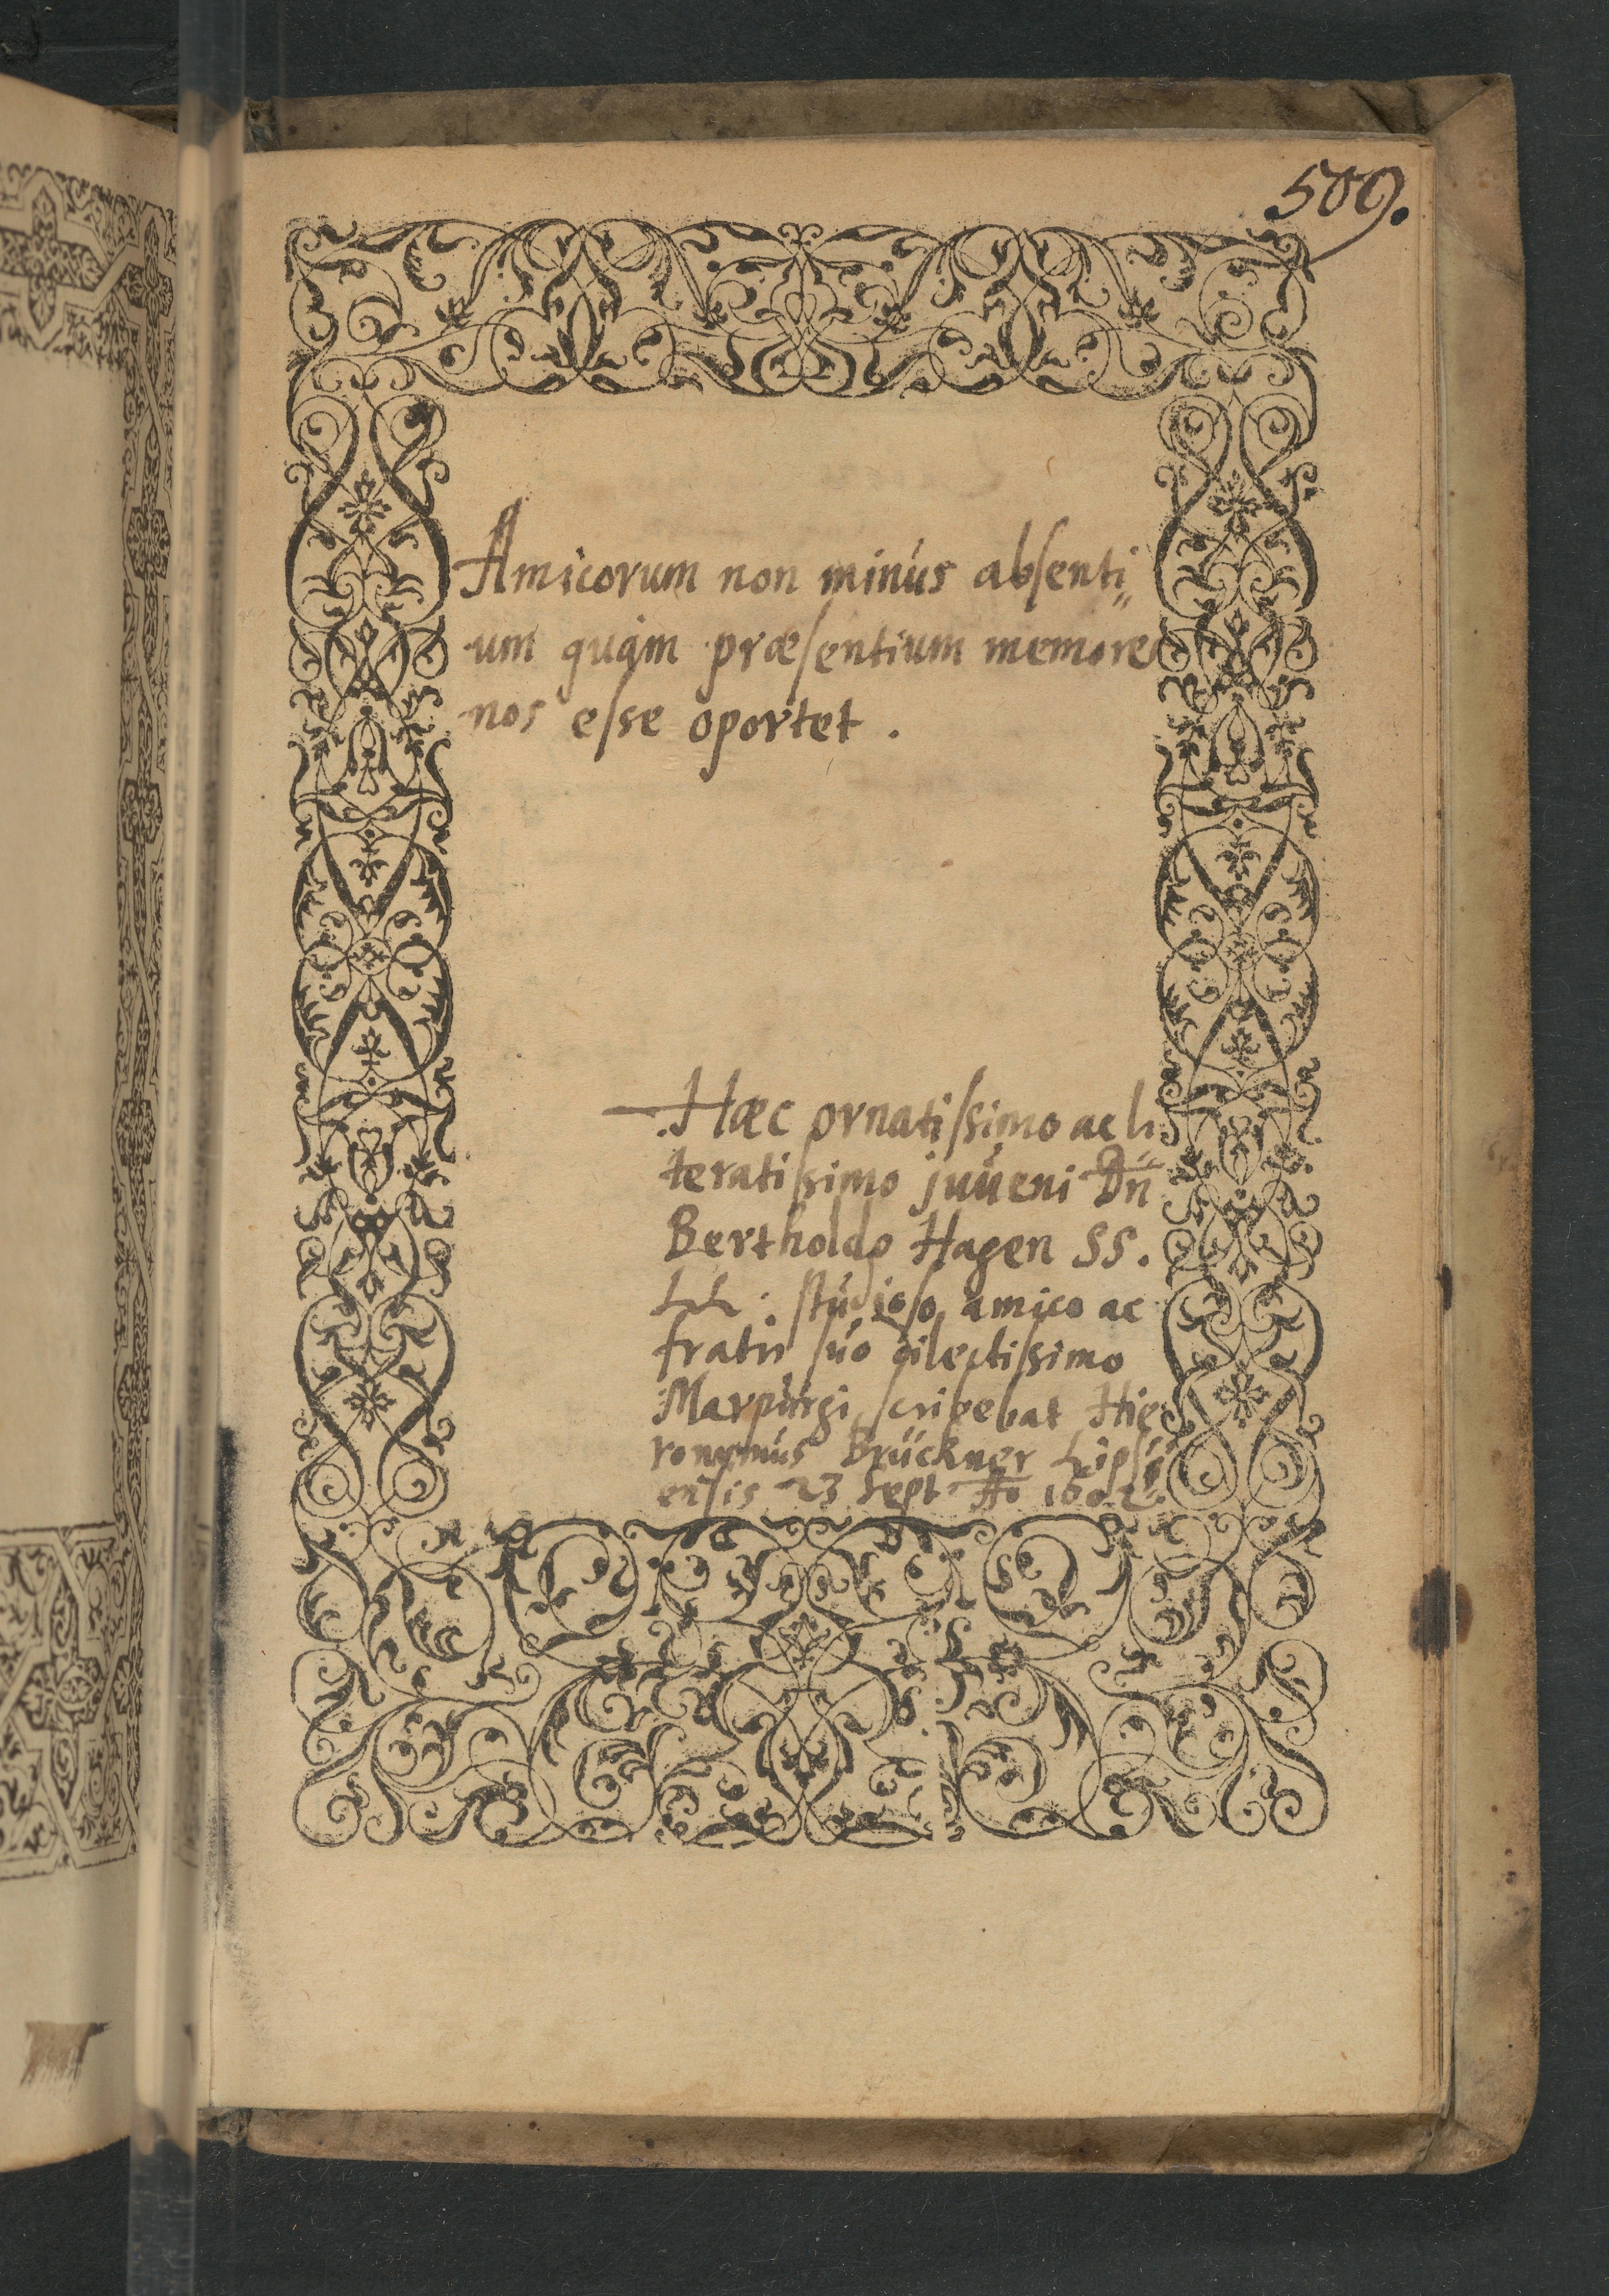 509.
Amicorum non minus absenti„
um quàm præsentium memores
nos esse oportet.
Hæc ornatissimo ac li„
teratissimo juveni Dn
Bertholdo Hagen SS.
LL. studioso amico ac
fratri suo dilectissimo
Marpurgi scribebat Hie„
ronymus Brückner Lipsi„
ensis 23 Sept Ao 1602.